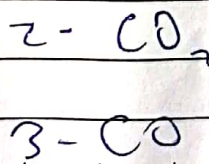 2 - CO₂
3 - CO